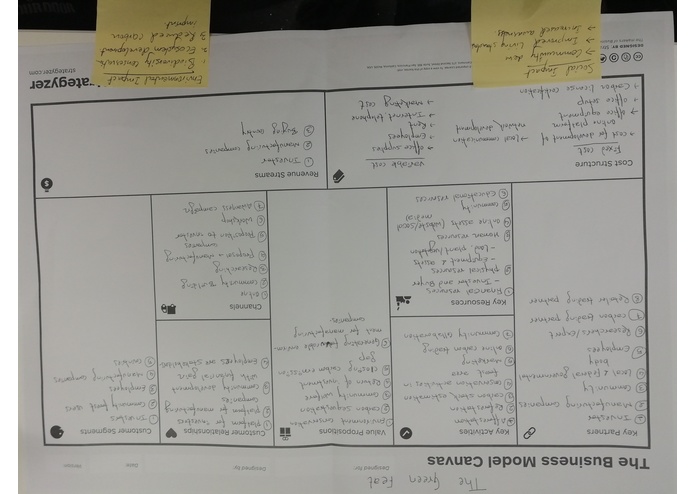 The Green Feat
The Business Model Canvas
Designed for:
Designed by:
Date:
Version:
Key Partners
① Investor
② Manufacturing Companies
③ Community
④ Local & Federal governmental
body
⑤ Employees
⑥ Researchers/expert
⑦ carbon trading partner
⑧ Retailer trading partner
Key Activities
① Afforestation
② Reforestation
③ carbon stock estimation
④ conservation activities in
forest area
⑤ marketing
⑥ online carbon trading
⑦ Community collaboration
Key Resources
① Financial resources
- Investor and Buyer
② physical resources
- Equipment & assets
- Land, plant/sapling
③ Human resources
④ online assets (website/social
media)
⑤ Community
⑥ Educational resources
Value Propositions
① Environment conservation
② carbon sequestration
③ Community welfare
④ Return of investment
⑤ closing carbon emission
gap
⑥ Generating carbon
market for manufacturing
companies
Customer Relationships
① platform for investors
② platform for manufacturing
Companies
③ Community development
with financial gain
④ Employees satisfaction
Channels
① online
② Community Building
③ Researching
④ proposing
companies
⑤ proposition to investor
⑥ Workshop
⑦ Awareness campaigns
Customer Segments
① Investors
② Community forest users
③ Employees
④ manufacturing companies
⑤ countries
Cost Structure
Fixed cost
→ cost for development of
online platform
→ office equipment
→ office setup
→ Carbon license certification
→ Local communication
network development
Variable cost
→ office supplies
→ Employees
→ Rent
→ Internet telephone
→ Marketing cost
Revenue Streams
① Investor
② manufacturing companies
③ Buying Country
Social Impact
→ Community dev
→ Improved living standards
→ Increased awareness
Environmental Impact
1. Biodiversity conservation
2. Ecosystem development
3. Reduced carbon
imprint
DESIGNED BY:
strategyzer.com